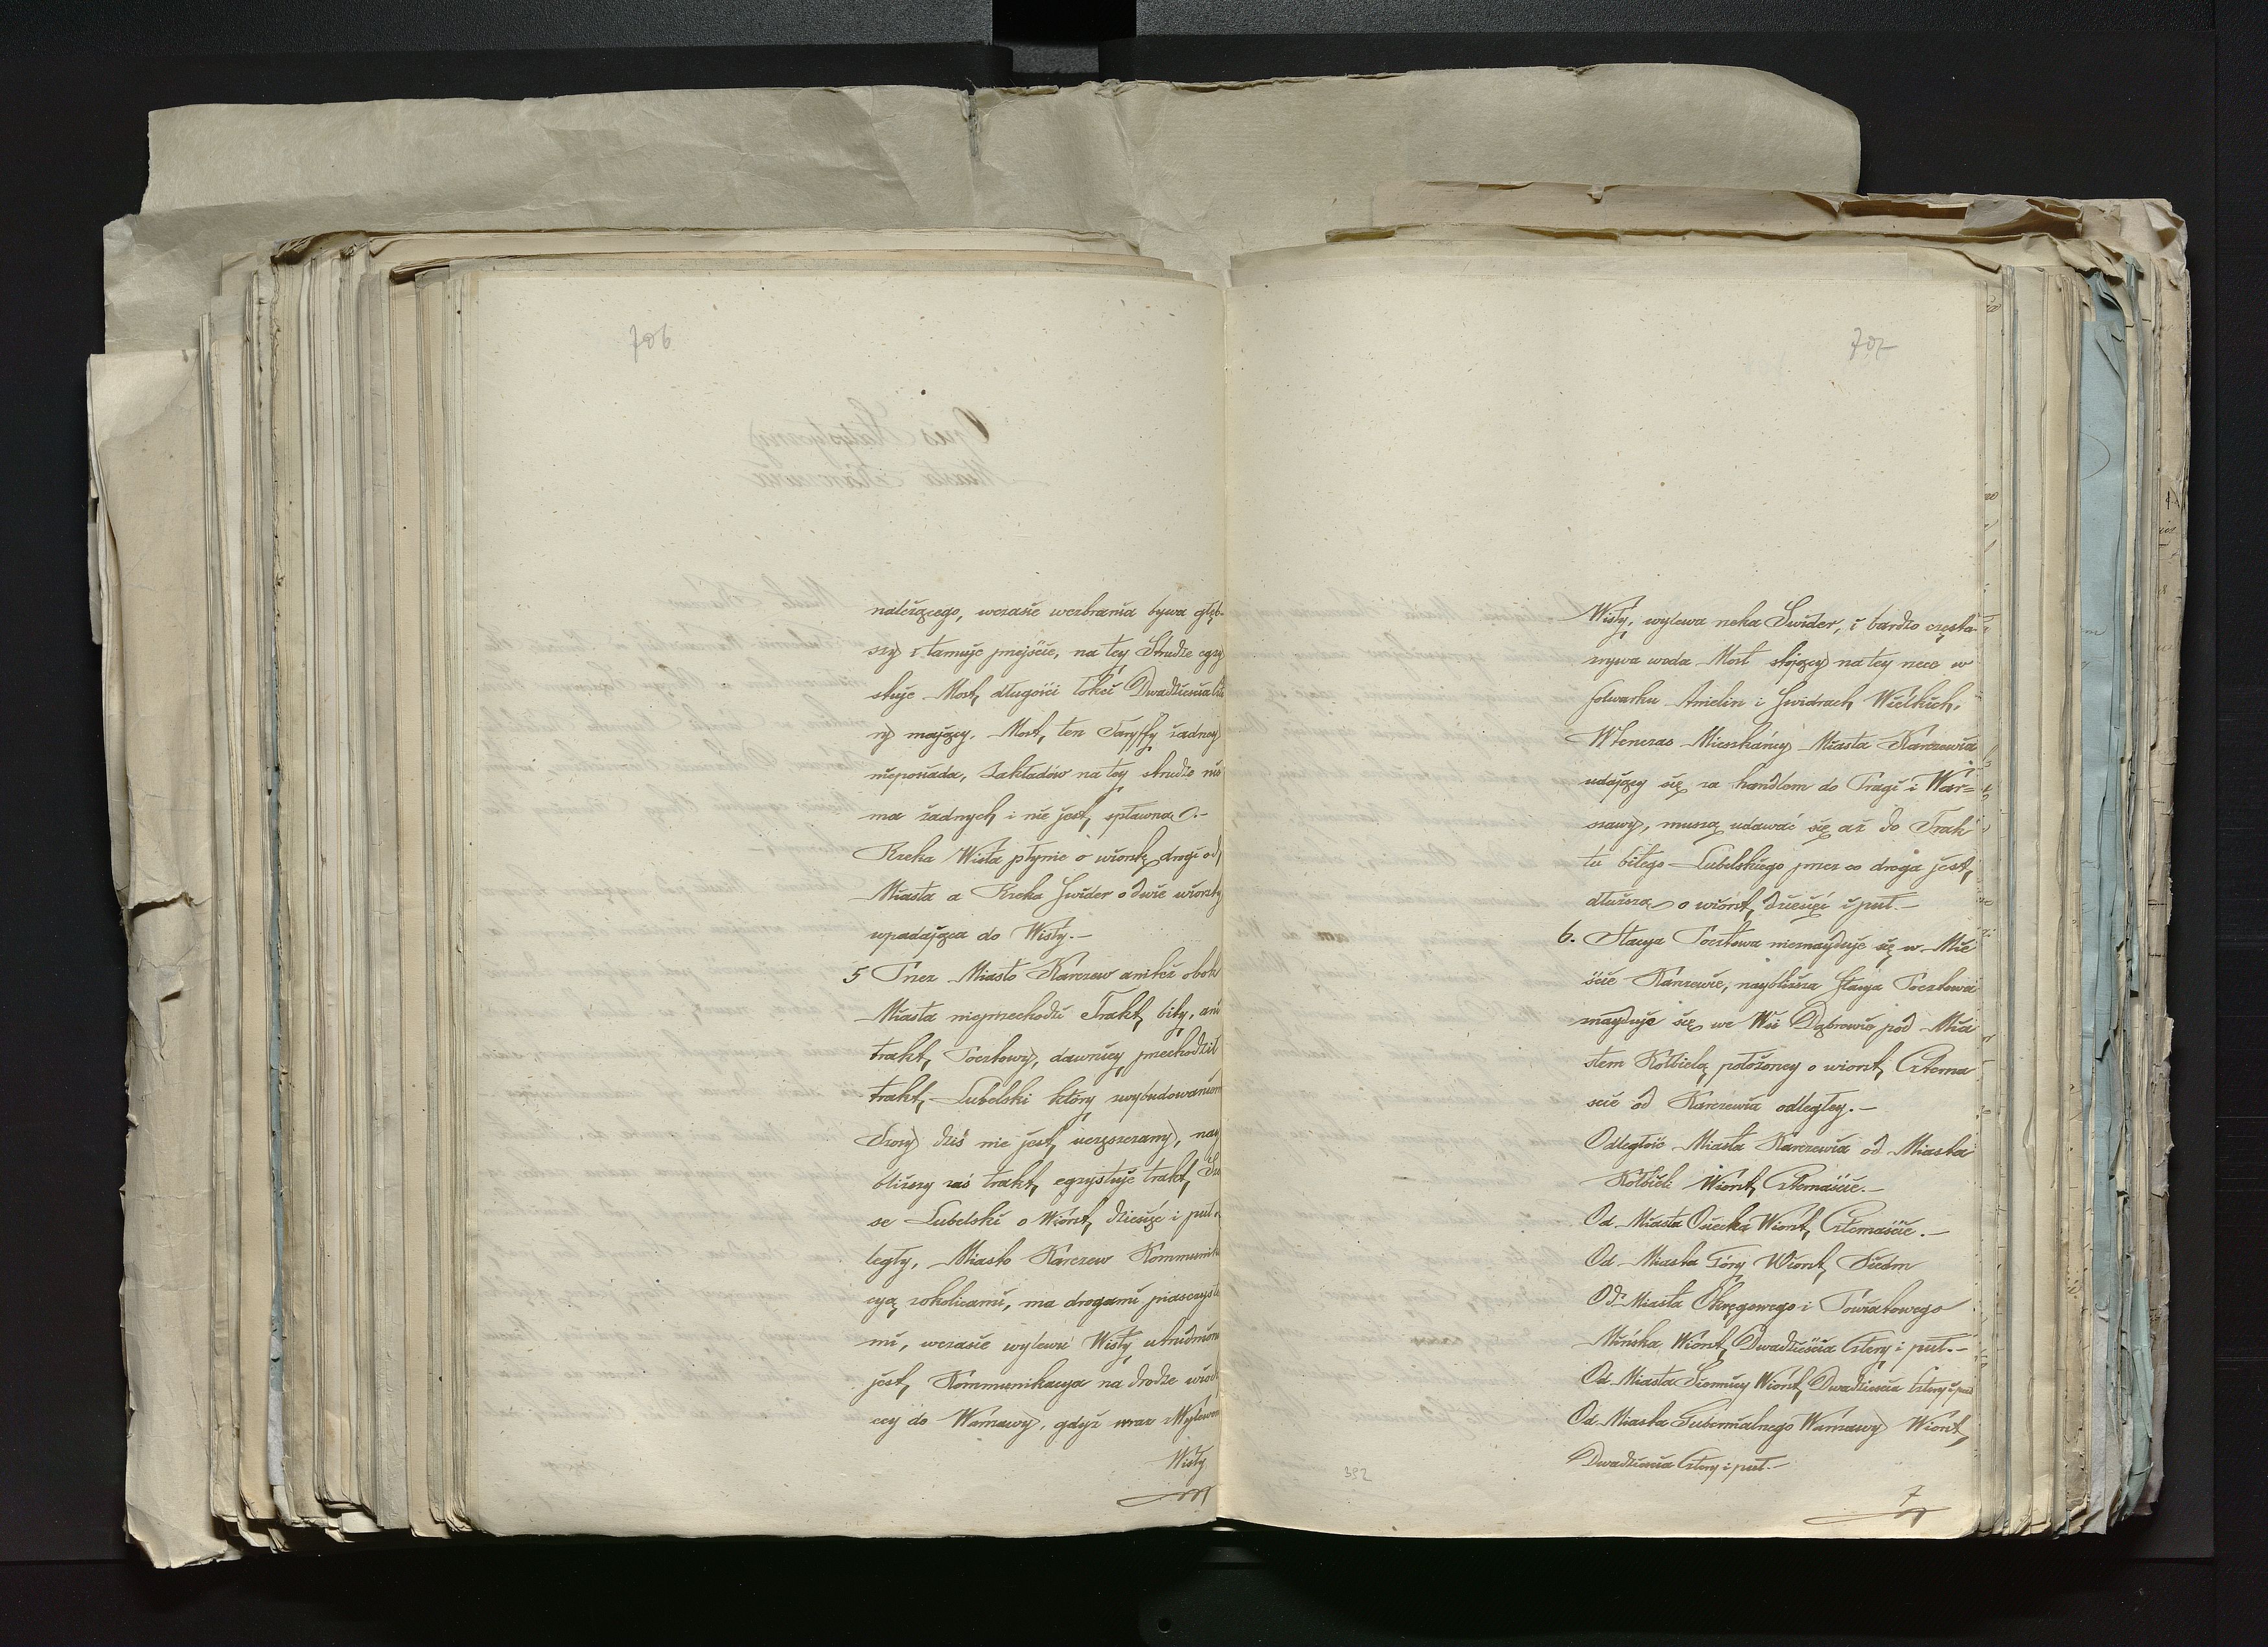 706
należącego, wczasie wezbrania bywa głęb-
szy i tamuje przejście, na tey Strudze egzy
stuje Most, długości łokci Dwadzieścia
ny mający. Most, ten Taryffy żadney
nieposiada, Zakładów na tey strudze nie
ma żadnych i nie jest, spławna.-
Rzeka Wisła płynie o wiorstę drogi od
Miasta a Rzeka Swider o dwie wiorsty
wpadająca do Wisły.-
5 Przez Miasto Karczew anitéż obok
Miasta nieprzechodzi Trakt, bity, ani
trakt, Pocztowy, dawniey przechodził
trakt, Lubelski który wybudowaniem
Szosy dziś nie jest, uczęszczany, nay
bliższy zaś trakt, egzystuje trakt, Szo
se Lubelski o Wiorst, dziesięć i puł
legły, Miasto Karczew Kommunika
cyą zokolicami, ma drogami piasczyste
mi, wczasie wylewu Wisły utrudniona
jest, Kommunikacya na drodze wiodą
cey do Warszawy, gdyż wraz z Wylewem
Wisły
707
Wisły, wylewa rzeka Swider, i bardzo często
zrywa woda Most stojący na tey rzece w
folwarku Anielin i Swidrach Wielkich,
Wtenczas Mieszkańcy Miasta Karczewia
udający się za handlem do Pragi i War=
szawy, muszą udawać się aż do Trak
tu bitego Lubelskiego przez co droga jest,
dłuższa o wiorst, dziesięć i puł.-
6. Stacya Pocztowa nieznayduje się w Mie
ście Karczewie, naybliższa Stacya Pocztowa
znayduje się we Wsi Dąbrowie pod Mia
stem Kołbielą położoney o wiorst, Czterna
ście od Karczewia odległey.-
Odległość Miasta Karczewia od Miasta
Kołbieli Wiorst, Czternaście.-
Od Miasta Osiecka Wiorst, Czternaście.-
Od Miasta Góry Wiorst, Siedm
Od Miasta Okręgowego i Powiatowego
Mińska Wiorst, Dwadzieścia Cztery i puł.-
Od Miasta Siennicy Wiorst, Dwadzieścia Cztery i puł
Od Miasta Gubernialnego Warszawy Wiorst,
Dwadzieścia Cztery i puł.-
7
352